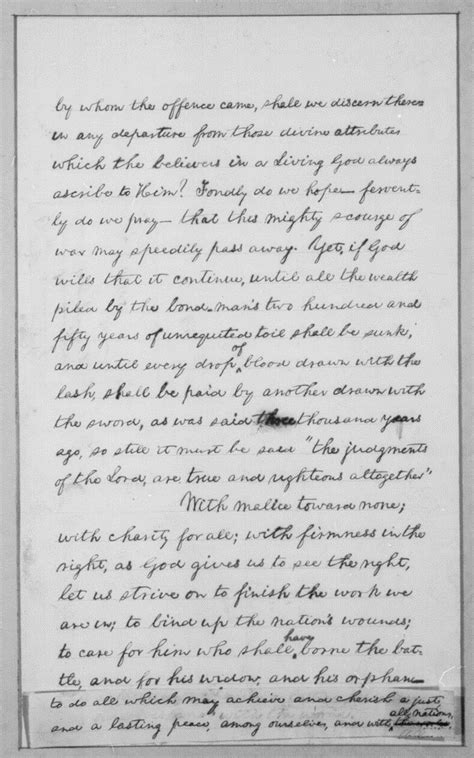 by whom the offence came, shall we discern there-
in any departure from those divine attributes
which the believers in a Living God always
ascribe to Him? Fondly do we hope— fervent-
ly do we pray— that this mighty scourge of
war may speedily pass away. Yet, if God
wills that it continue, until all the wealth
piled by the bond-man's two hundred and
fifty years of unrequited toil shall be sunk,
and until every drop of blood drawn with the
lash, shall be paid by another drawn with
the sword, as was said three thousand years
ago, so still it must be said "the judgments
of the Lord, are true and righteous altogether"
With malice toward none;
with charity for all; with firmness in the
right, as God gives us to see the right,
let us strive on to finish the work we
are in; to bind up the nation's wounds;
to care for him who shall have borne the bat-
tle, and for his widow, and his orphan—
to do all which may achieve and cherish a just,
and a lasting peace, among ourselves, and with all nations.